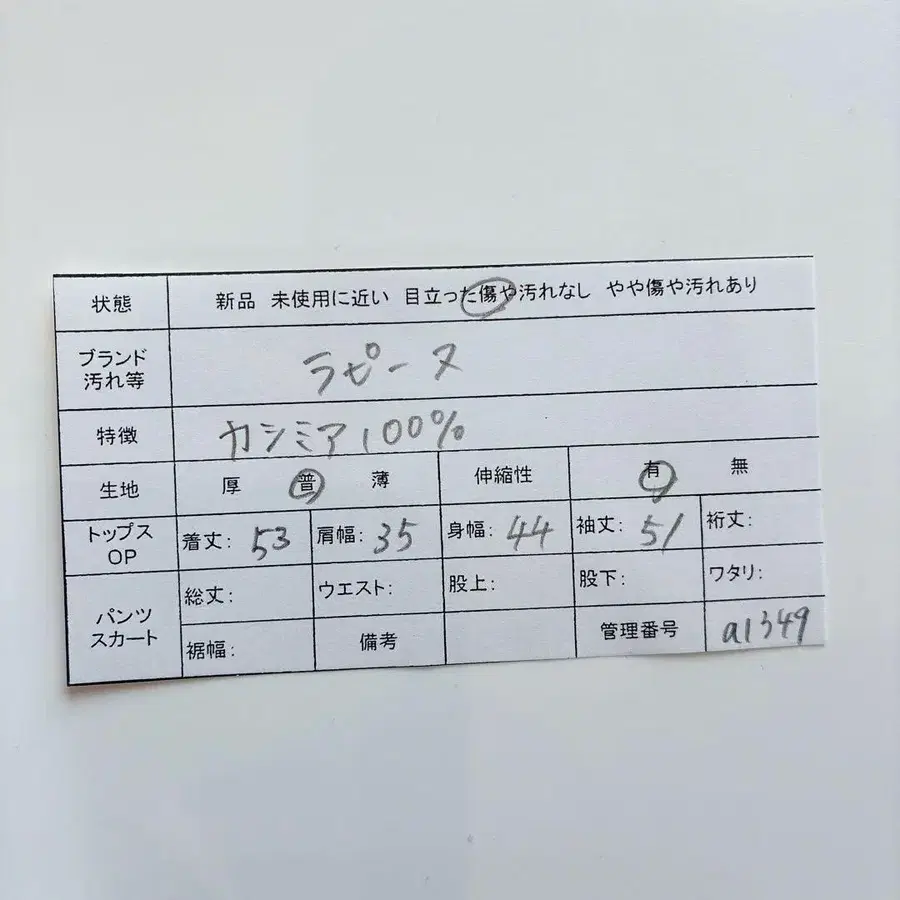 状態 新品 未使用に近い 目立った傷や汚れなし やや傷や汚れあり
ブランド
汚れ等
ラピーヌ
特徴 カシミア100%
生地 厚 普 薄 伸縮性 有 無
トップス
OP
着丈: 53 肩幅: 35 身幅: 44 袖丈: 51 裄丈:
パンツ
スカート
総丈: ウエスト: 股上: 股下: ワタリ:
裾幅: 備考 管理番号 a1349